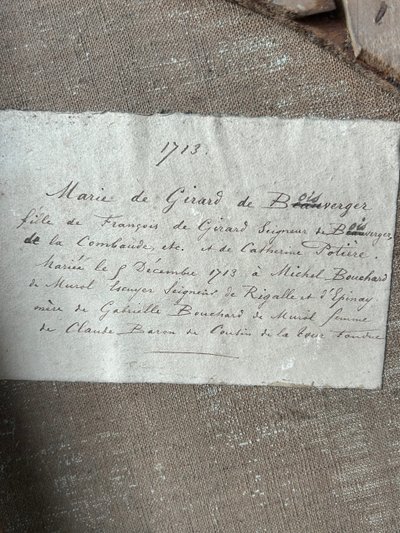 1713.
Marie de Girard de Boisverger
fille de François de Girard Seigneur de Boisverger,
de la Combaude, etc. et de Catherine Potière.
Mariée le 5 Décembre 1713 à Michel Bouchard
de Murol Ecuyer Seigneur de Rigalle et d'Epinay
mère de Gabrielle Bouchard de Murol femme
de Claude Baron de Coutin de la Tour Fondue